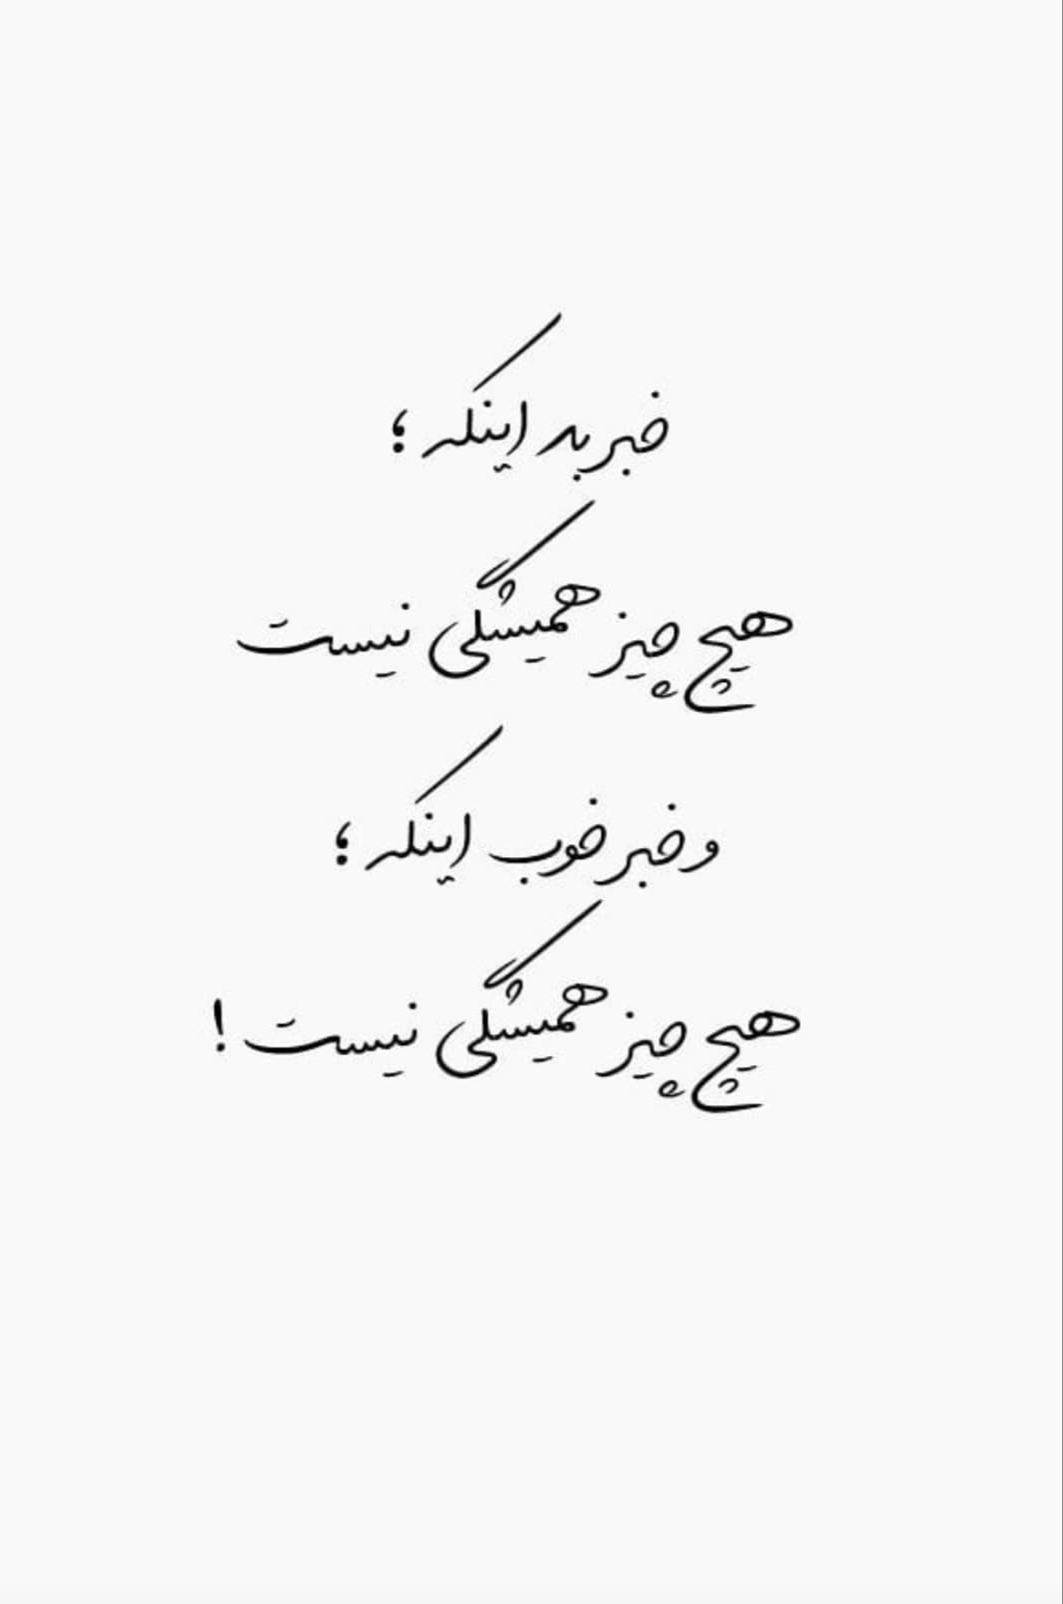 خبر بد اینکه ؛
هیچ چیز همیشگی نیست
و خبر خوب اینکه ؛
هیچ چیز همیشگی نیست !